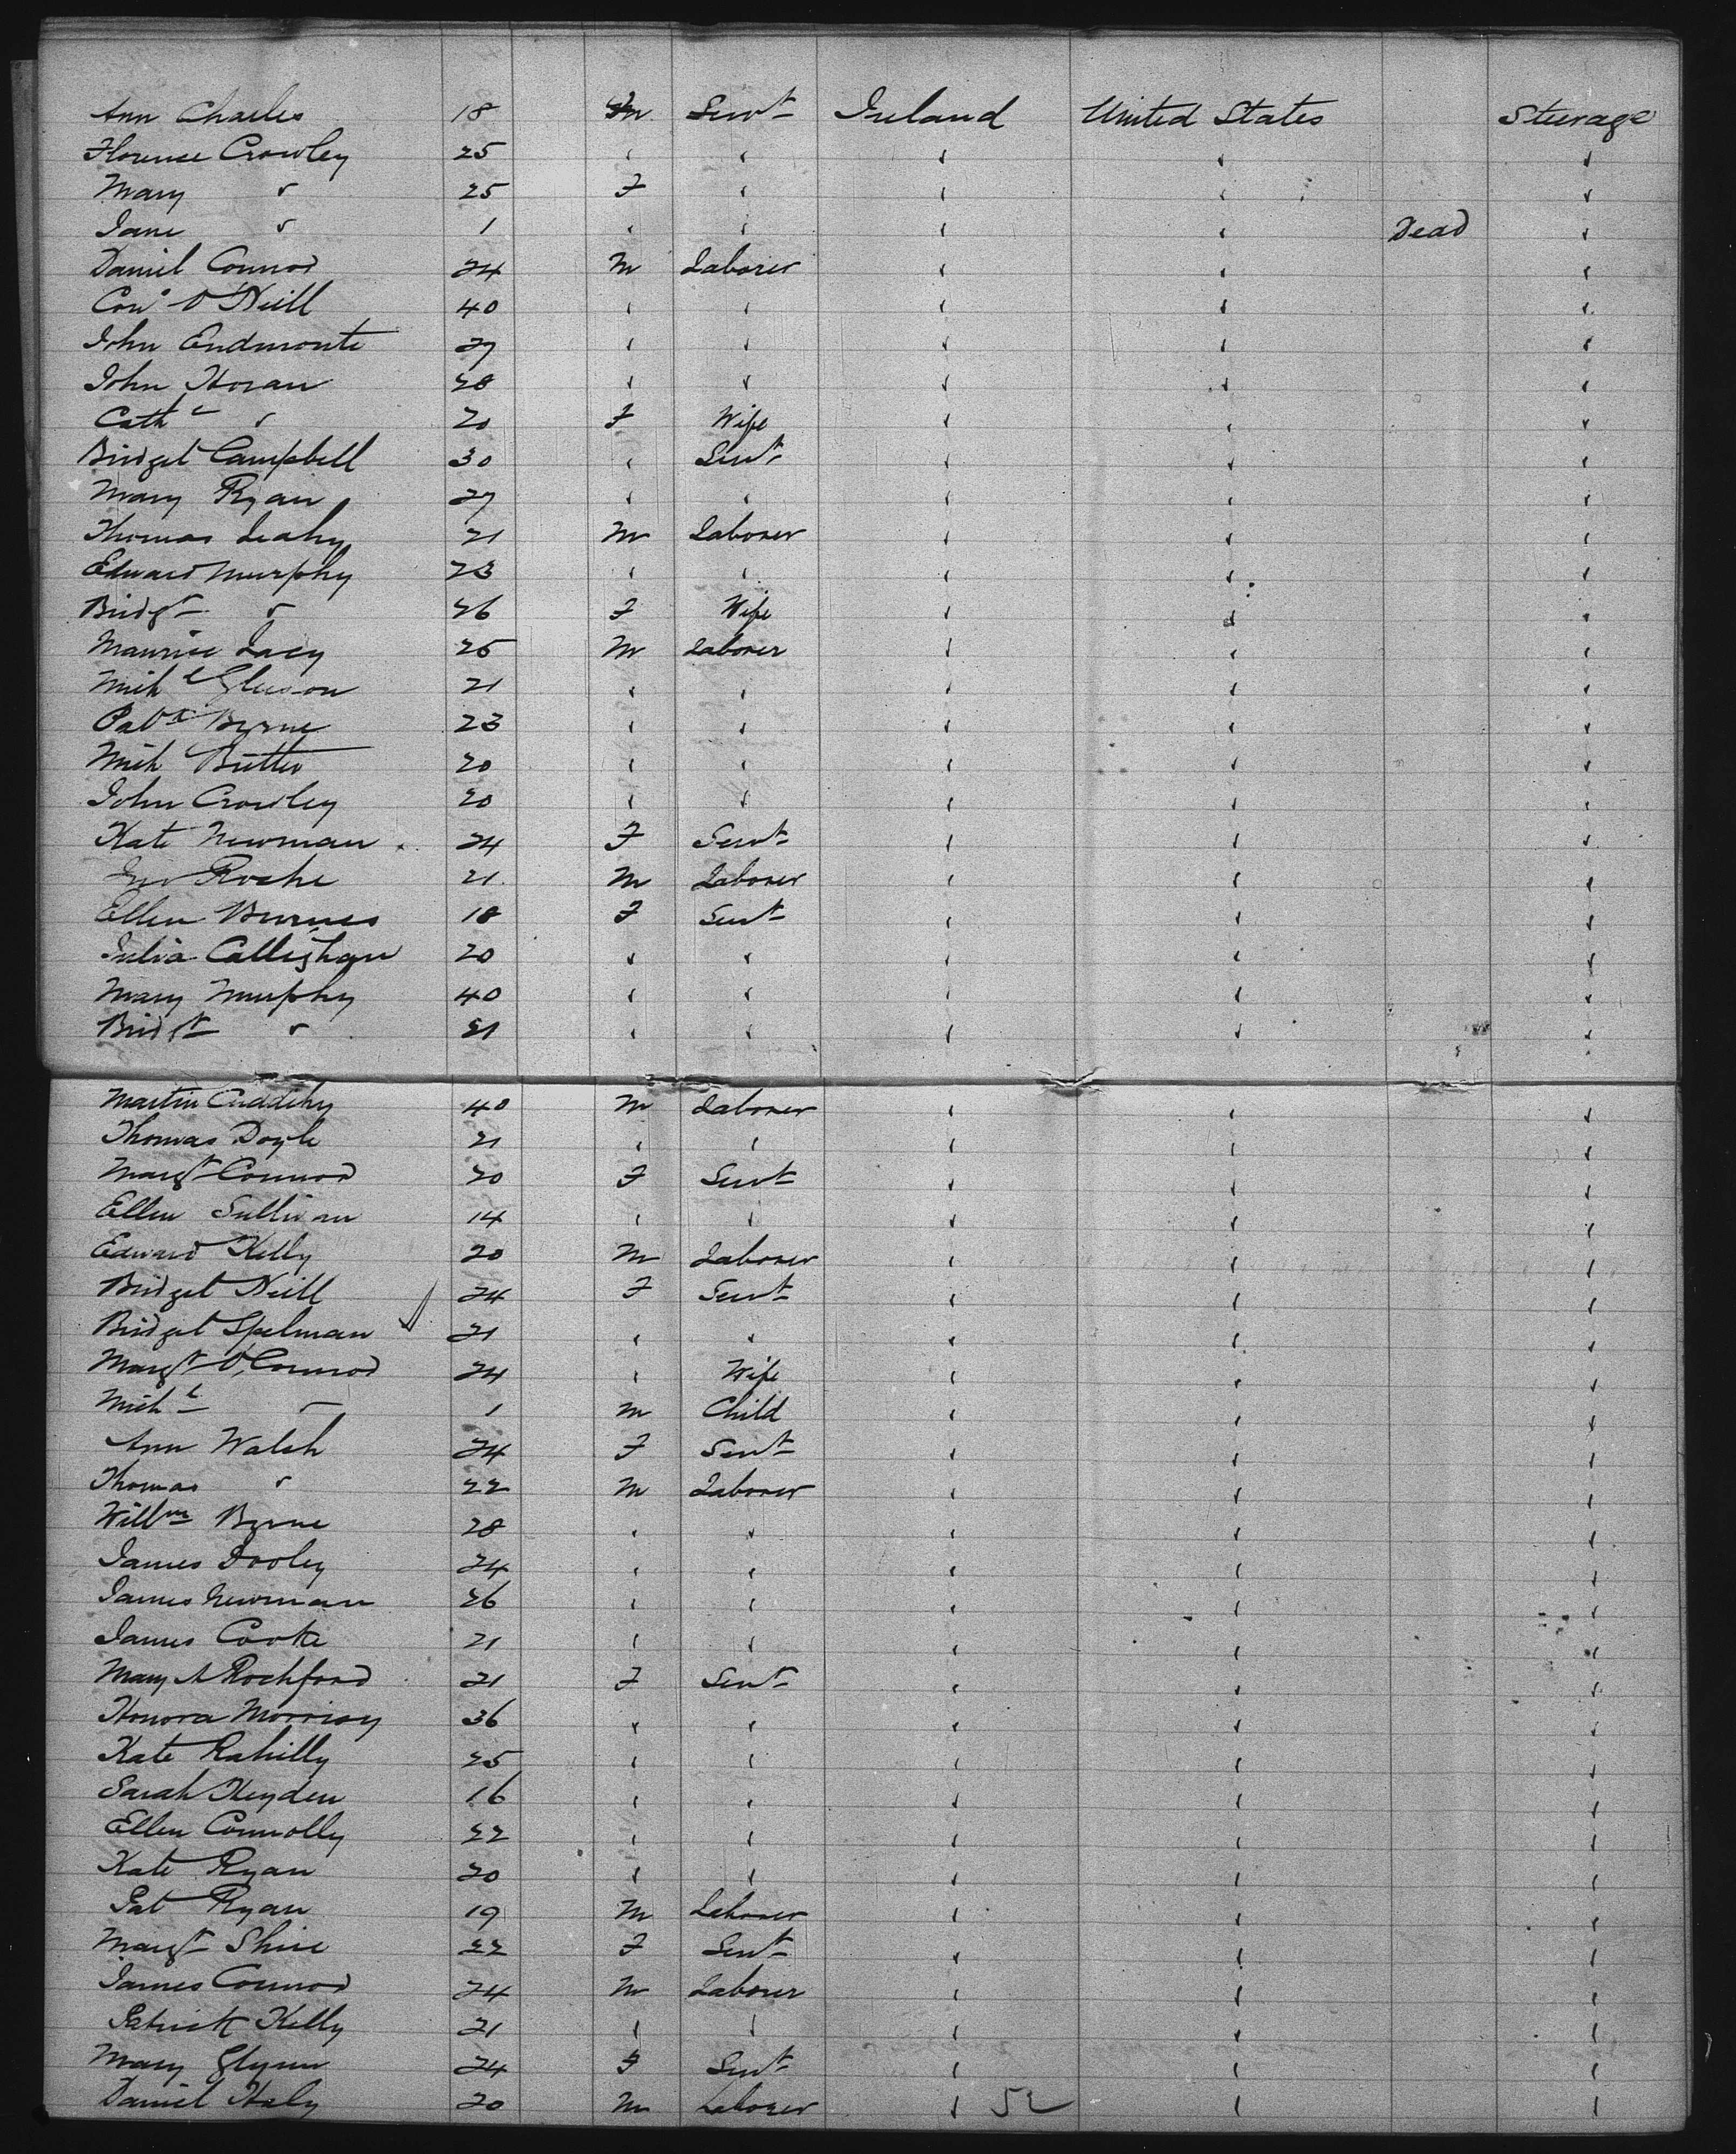 Ann Charles 18 m Servt Ireland United States Steerage
Florence Crowley 25 " " " " "
Mary " 25 F " " " "
Jane " 1 " " " " Dead "
Daniel Connor 24 M Laborer " " "
Con O'Neill 40 " " " " "
John Endmonte 27 " " " " "
John Horan 28 " " " " "
Cathe " 20 F Wife " " "
Bridget Campbell 30 " Servt " " "
Mary Ryan 27 " " " " "
Thomas Leahy 21 M Laborer " " "
Edward Murphy 23 " " " " "
Bridgt " 26 F Wife " " "
Maurice Lacy 25 M Laborer " " "
Michl Gleeson 21 " " " " "
Patk Byrne 23 " " " " "
Mich Butter 20 " " " " "
John Crowley 20 " " " " "
Kate Newman 24 F Servt " " "
Jno Roche 21 M Laborer " " "
Ellen Burnes 18 F Servt " " "
Julia Callighan 20 " " " " "
Mary Murphy 40 " " " " "
Bridgt " 21 " " " " "
Martin Cuddihy 40 M Laborer " " "
Thomas Doyle 21 " " " " "
Margt Connor 20 F Servt " " "
Ellen Sullivan 14 " " " " "
Edward Kelly 20 M Laborer " " "
Bridget Neill 24 F Servt " " "
Bridget Spelman 21 " " " " "
Margt O'Connor 24 " Wife " " "
Michl " 1 M Child " " "
Ann Walsh 24 F Servt " " "
Thomas " 22 M Laborer " " "
Willm Byrne 28 " " " " "
James Dooley 24 " " " " "
James Newman 26 " " " " "
James Cooke 21 " " " " "
Mary A Rochford 21 F Servt " " "
Honora Morrisy 36 " " " " "
Kate Rahilly 25 " " " " "
Sarah Heyden 16 " " " " "
Ellen Connolly 22 " " " " "
Kate Ryan 20 " " " " "
Pat Ryan 19 M Laborer " " "
Margt Shine 22 F Servt " " "
James Connor 24 M Laborer " " "
Patrick Kelly 21 " " " " "
Mary Glynn 24 F Servt " " "
Daniel Haly 20 M Laborer " 52 " "